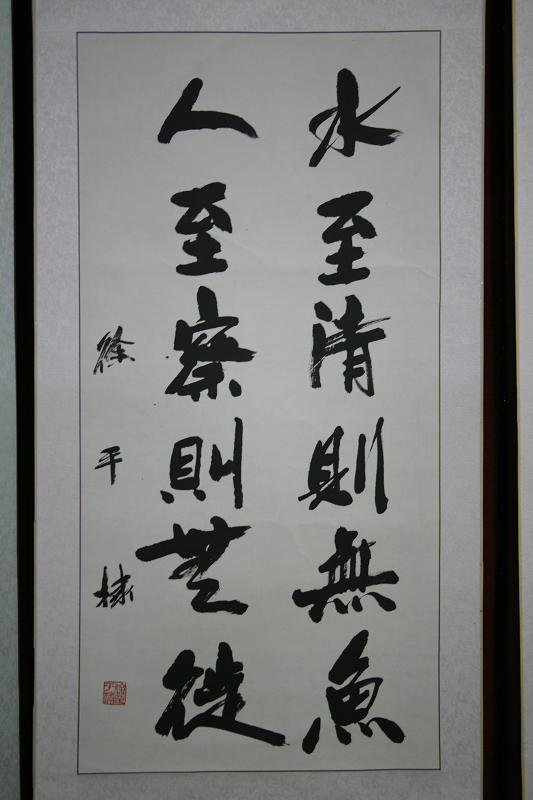 水至清則無魚
人至察則無徒
徐平棣